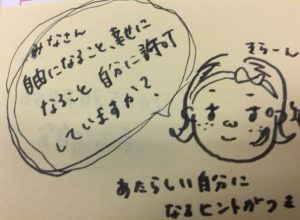 みなさん
自由になること、幸せに
なること 自分に許可
していますか?
きらーん
あたらしい自分に
なるヒントがつま